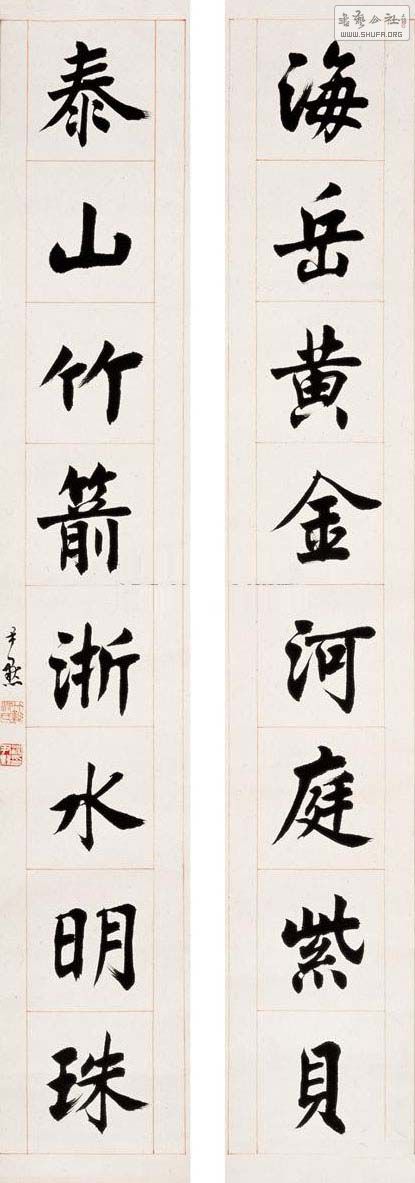 海岳黄金河庭紫貝
泰山竹箭浙水明珠
尹默
書藝公社
WWW.SHUFA.ORG